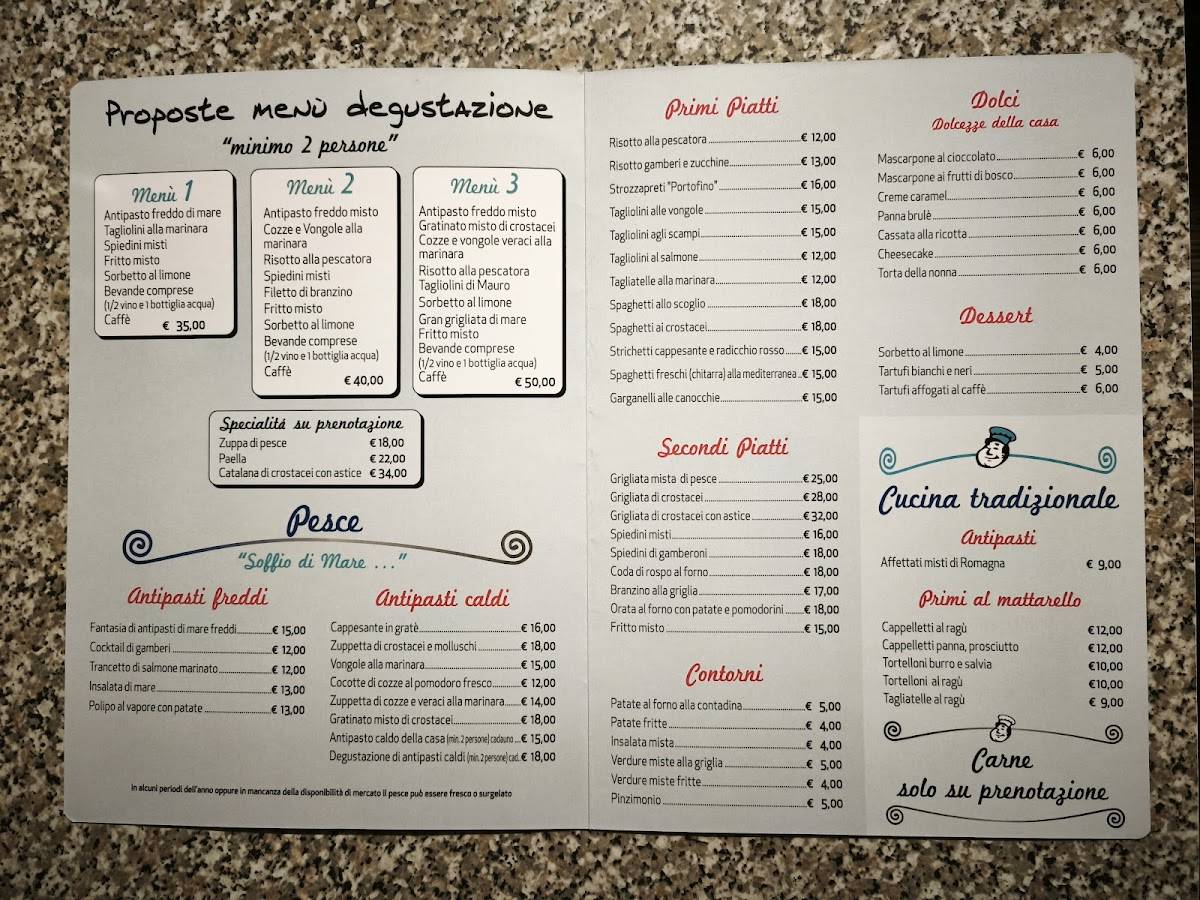 Proposte menù degustazione
"minimo 2 persone"
Menù 1
Antipasto freddo di mare
Tagliolini alla marinara
Spiedini misti
Fritto misto
Sorbetto al limone
Bevande comprese
(1/2 vino e 1 bottiglia acqua)
Caffè
€ 35,00
Menù 2
Antipasto freddo misto
Cozze e Vongole alla
marinara
Risotto alla pescatora
Spiedini misti
Filetto di branzino
Fritto misto
Sorbetto al limone
Bevande comprese
(1/2 vino e 1 bottiglia acqua)
Caffè
€ 40,00
Menù 3
Antipasto freddo misto
Gratinato misto di crostacei
Cozze e vongole veraci alla
marinara
Risotto alla pescatora
Tagliolini di Mauro
Sorbetto al limone
Gran grigliata di mare
Fritto misto
Bevande comprese
(1/2 vino e 1 bottiglia acqua)
Caffè
€ 50,00
Specialitá su prenotazione
Zuppa di pesce € 18,00
Paella € 22,00
Catalana di crostacei con astice € 34,00
Pesce
"Soffio di Mare ..."
Antipasti freddi
Fantasia di antipasti di mare freddi € 15,00
Cocktail di gamberi € 12,00
Trancetto di salmone marinato € 12,00
Insalata di mare € 13,00
Polipo al vapore con patate € 13,00
Antipasti caldi
Cappesante in gratè € 16,00
Zuppetta di crostacei e molluschi € 18,00
Vongole alla marinara € 15,00
Cocotte di cozze al pomodoro fresco € 12,00
Zuppetta di cozze e veraci alla marinara € 14,00
Gratinato misto di crostacei € 18,00
Antipasto caldo della casa (min. 2 persone) cadauno € 15,00
Degustazione di antipasti caldi (min. 2 persone) cad. € 18,00
In alcuni periodi dell'anno oppure in mancanza della disponibilità di mercato il pesce può essere fresco o surgelato
Primi Piatti
Risotto alla pescatora € 12,00
Risotto gamberi e zucchine € 13,00
Strozzapreti "Portofino" € 16,00
Tagliolini alle vongole € 15,00
Tagliolini agli scampi € 15,00
Tagliolini al salmone € 12,00
Tagliatelle alla marinara € 12,00
Spaghetti allo scoglio € 18,00
Spaghetti ai crostacei € 18,00
Strichetti cappesante e radicchio rosso € 15,00
Spaghetti freschi (chitarra) alla mediterranea € 15,00
Garganelli alle canocchie € 15,00
Secondi Piatti
Grigliata mista di pesce € 25,00
Grigliata di crostacei € 28,00
Grigliata di crostacei con astice €32,00
Spiedini misti € 16,00
Spiedini di gamberoni € 18,00
Coda di rospo al forno € 18,00
Branzino alla griglia € 17,00
Orata al forno con patate e pomodorini € 18,00
Fritto misto € 15,00
Contorni
Patate al forno alla contadina € 5,00
Patate fritte € 4,00
Insalata mista € 4,00
Verdure miste alla griglia € 5,00
Verdure miste fritte € 4,00
Pinzimonio € 5,00
Dolci
Dolcezze della casa
Mascarpone al cioccolato € 6,00
Mascarpone ai frutti di bosco € 6,00
Creme caramel € 6,00
Panna brulè € 6,00
Cassata alla ricotta € 6,00
Cheesecake € 6,00
Torta della nonna € 6,00
Dessert
Sorbetto al limone € 4,00
Tartufi bianchi e neri € 5,00
Tartufi affogati al caffè € 6,00
Cucina tradizionale
Antipasti
Affettati misti di Romagna € 9,00
Primi al mattarello
Cappelletti al ragù €12,00
Cappelletti panna, prosciutto €12,00
Tortelloni burro e salvia €10,00
Tortelloni al ragù €10,00
Tagliatelle al ragù € 9,00
Carne
solo su prenotazione